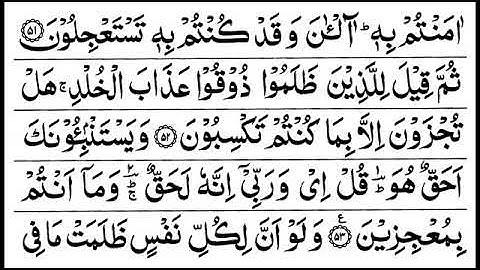 اٰمَنْتُمْ بِهٖ ؕ آٰلْـٰٔنَ وَ قَدْ كُنْتُمْ بِهٖ تَسْتَعْجِلُوْنَ ﴿۵۱﴾
ثُمَّ قِیْلَ لِلَّذِیْنَ ظَلَمُوْا ذُوْقُوْا عَذَابَ الْخُلْدِ ۚ هَلْ
تُجْزَوْنَ اِلَّا بِمَا كُنْتُمْ تَكْسِبُوْنَ ﴿۵۲﴾ وَ یَسْتَنْۢبِـُٔوْنَكَ
اَحَقٌّ هُوَ ؔؕ قُلْ اِیْ وَ رَبِّیْۤ اِنَّهٗ لَحَقٌّ ؔۚ وَ مَاۤ اَنْتُمْ
بِمُعْجِزِیْنَ ﴿۵۳﴾ ع وَ لَوْ اَنَّ لِكُلِّ نَفْسٍ ظَلَمَتْ مَا فِی